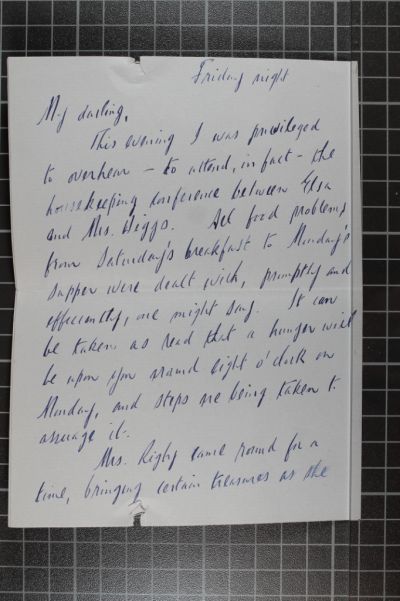 Friday night
My darling,
This evening I was privileged
to overhear – to attend, in fact – the
housekeeping conference between Elsa
and Mrs. Higgs. All food problems
from Saturday's breakfast to Monday's
supper were dealt with, promptly and
efficiently, one might say. It can
be taken as read that a hunger will
be upon you round eight o'clock on
Monday, and steps are being taken to
assuage it.
Mrs. Rigby came round for a
time, bringing certain treasures as she